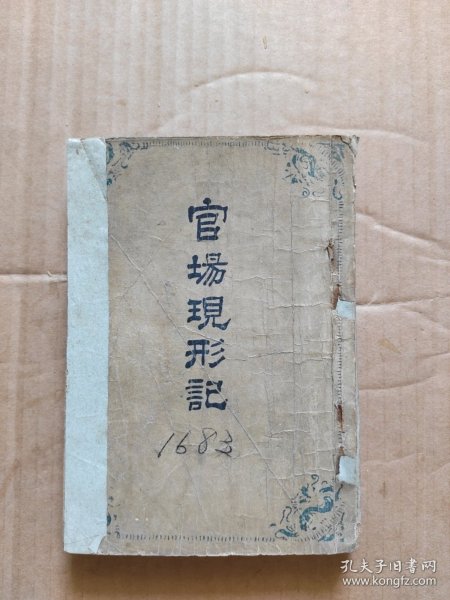 官場現形記
1683
孔夫子旧书网
www.kongfz.com